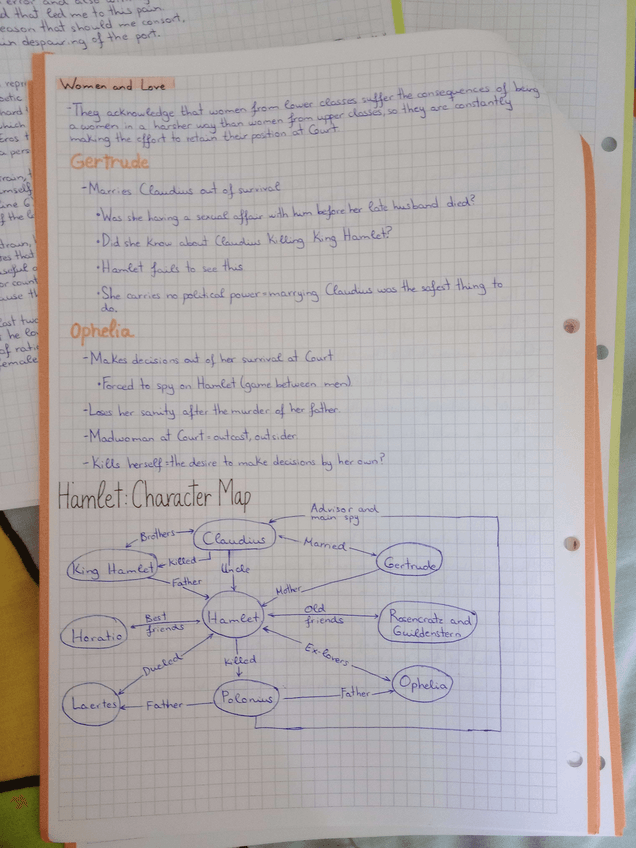 error and also
d that led me to this pain.
reason that should me consort,
un despairing of the port.
Women and Love
-They acknowledge that women from lower classes suffer the consequences of being
a women in a harsher way than women from upper classes, so they are constantly
making the effort to retain their position at Court.
Gertrude
-Marries Claudius out of survival
•Was she having a sexual affair with him before her late husband died?
•Did she know about Claudius killing King Hamlet?
•Hamlet fails to see this
•She carries no political power=marrying Claudius was the safest thing to
do.
Ophelia
-Makes decisions out of her survival at Court
•Forced to spy on Hamlet (game between men)
-Loses her sanity after the murder of her father
-Madwoman at Court=outcast, outsider
-Kills herself=the desire to make decisions by her own?
Hamlet: Character Map
Advisor and
main spy
Brothers
Claudius
Married
King Hamlet
Killed
Uncle
Gertrude
Father
Mother
Horatio
Best
friends
Hamlet
Old
friends
Rosencratz and
Guildenstern
Dueled
Killed
Ex-lovers
Laertes
Father
Polonius
Father
Ophelia